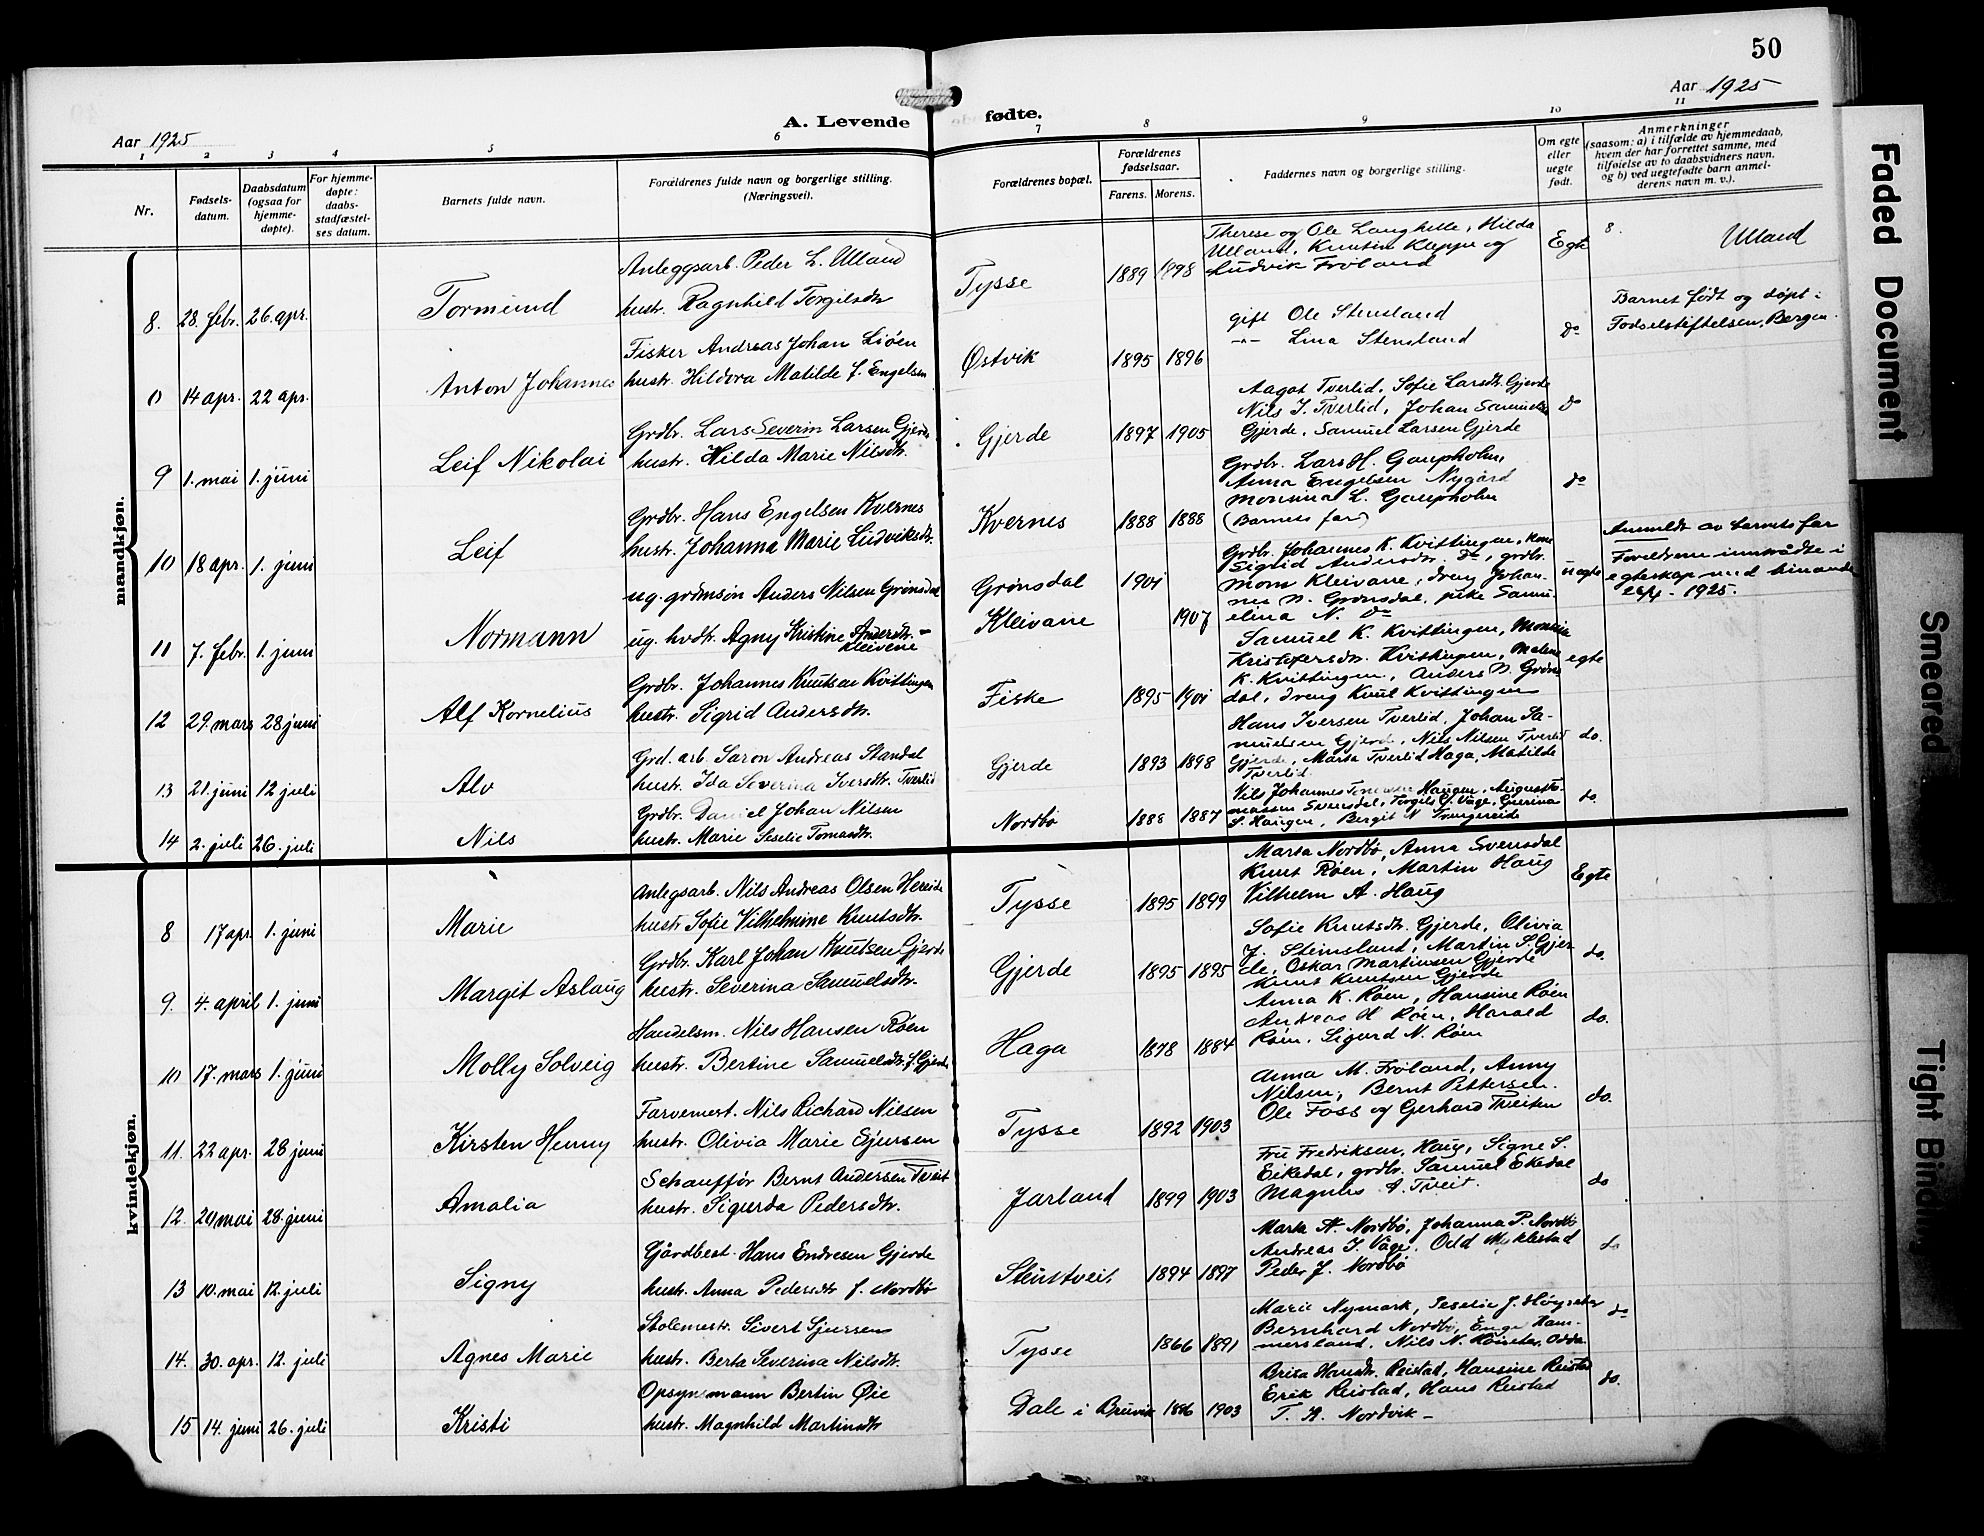 50
Aar 1925
Aar 1925
A. Levende fødte.
1 2 3 4 5 6 7 8 9 10 11
Nr.
Fødsels-
datum.
Daabsdatum
(ogsaa for
hjemme-
døpte).
For hjemme-
døpte:
daabs-
stadfæstel-
ses datum.
Barnets fulde navn.
Forældrenes fulde navn og borgerlige stilling.
(Næringsvei).
Forældrenes bopæl.
Forældrenes
fødselsaar.
Farens. Morens.
Faddernes navn og borgerlige stilling.
Om egte
eller
uegte
født.
Anmerkninger
(saasom: a) i tilfælde av hjemmedaab,
hvem der har forrettet samme, med
tilføielse av to daabsvidners navn,
og b) ved uegtefødte barn anmel-
derens navn m. v.).
mandkjøn.
8. 28. febr. 26. apr. Tormund
Anleggsarb. Peder L. Ulland
hustr. Ragnhild Torgilsdtr
Tysse 1889 1898
Therese og Ole Langhelle, Hilda
Ulland, Kleppe og
Ludvik Frøland
Egte 8. Ulland
0 14 apr. 22 apr. Anton Johannes
Fisker Andreas Johan Liøen
hustr. Hildora Matilde f. Engelsen
Østvik 1895 1896
gift Ole Stensland
-"- Lina Stensland
do
Barnet født og døpt i
Fødselstiftelsen, Bergen.
9 1. mai 1. juni Leif Nikolai
Grdbr. Lars Severin Larsen Gjerde
hustr. Hilda Marie Nilsdtr.
Gjerde 1897 1905
Aagot Tverlid, Sofie Larsdtr. Gjerde
Nils I. Tverlid, Johan Samuelsen
Gjerde, Samuel Larsen Gjerde
do
10 18 apr. 1. juni Leif
Grdbr. Hans Engelsen Kvernes
hustr. Johanna Marie Ludviksdtr.
Kvernes 1888 1888
Grdbr. Lars H. Gaupholm,
Anna Engelsen Nygård
Monsina L. Gaupholm
(Barnets far)
do
11 7. febr. 1. juni Normann
ug. grdmsøn Anders Nilsen Grønsdal
ug. hvdtr. Agny Kristine Andersdtr. -
Kleivene
Grønsdal 1901
Kleivane 1907
Grdbr. Johannes K. Kvittingen, kone
Sigrid Andersdtr. do, grdbr.
Mons Kleivane, dreng Johan-
nes N. Grønsdal, pike Samu-
elina N. do
uegte
Anmeldt av barnets far
Foreldrene inntrådte i
egteskap med hinanden
1925.
12 29. mars 28 juni Alf Kornelius
Grdbr. Johannes Knutsen Kvittingen
hustr. Sigrid Andersdtr.
Fiske 1895 1901
Samuel K. Kvittingen, Monsine
Kristofersdtr. Kvittingen, Malene
K. Kvittingen, Anders N. Grøns-
dal, dreng Knut Kvittingen
egte
13 21. juni 12 juli Alv
Grd. arb. Saron Andreas Standal
hustr. Ida Severina Iversdtr. Tverlid
Gjerde 1893 1898
Hans Iversen Tverlid, Johan Sa-
muelsen Gjerde, Nils Nilsen Tverlid
Gjerde, Marta Tverlid Haga, Matilde
Tverlid
do.
14 2. juli 26. juli Nils
Grdbr. Daniel Johan Nilsen
hustr. Marie Seselie Tomasdtr.
Nordbø 1888 1887
Nils Johannes Haugen, August To-
massen Svensdal, Torgils J. Våge, Guerina
S. Haugen, Bergit N
do.
kvindekjøn.
8 17 apr. 1. juni Marie
Anlegsarb. Nils Andreas Olsen Hereide
hustr Sofie Vilhelmine Knutsdtr.
Tysse 1895 1899
Marta Nordbø, Anna Svensdal
Knut Røen, Martin Haug
Vilhelm A. Haug
Egte
9. 4. april 1. juni Margit Aslaug
Grdbr. Karl Johan Knutsen Gjerde
hustr. Severina Samuelsdtr.
Gjerde 1895 1895
Sofie Knutsdtr. Gjerde, Olivia
J. Steinsland, Martin S. Gjer-
de, Oskar Martinsen Gjerde
Knut Knutsen Gjerde
do.
10 17. mars 1. juni Molly Solveig
Handelsm. Nils Hansen Røen
hustr. Bertine Samuelsdtr. f. Gjerde
Haga 1878 1884
Anna K. Røen, Hansine Røen
Andreas H. Røen, Harald
Røen, Sigurd N. Røen
do.
11. 22 apr. 28 juni Kirsten Henny
Farvemest. Nils Richard Nilsen
hustr. Olivia Marie Sjursen
Tysse 1892 1903
Anna M. Frøland, Anny
Nilsen, Bernt Pettersen.
Ole Foss og Gerhard Tveiten
do.
12. 20 mai 28. juni Amalia
Schauffør Bernt Andersen Tveit
hustr. Sigurda Pedersdtr.
Jarland 1899 1903
Fru Fredriksen, Haug, Signe S.
Eikedal, grdbr. Samuel Ekedal
Magnus A. Tveit.
do
13 10. mai 12. juli Signy
Gårdbest. Hans Endresen Gjerde
hustr. Anna Pedersdtr f. Nordbø
Steinstveit 1894 1897
Marta A. Nordbø, Johanna P. Nordbø
Andreas I. Våge, Odd Myklestad
Peder J. Nordbø
do
14. 30. apr. 12. juli Agnes Marie
Stolemestr. Sivert Sjursen
hustr. Berta Severina Nilsdtr.
Tysse 1866 1891
Marie Nymark, Seselie J. Høyseter
Bernhard Nordbø, Enge Ham-
mersland, Nils N. Odda
do
15 14. juni 26. juli Kristi
Opsynsmann Bertin Øie
hustr. Magnhild Martinsdtr
Dale i Bruvik 1896 1903
Brita Hansdtr. Reistad, Hansine Reistad
Erik Reistad, Hans Reistad
T. A. Nordvik -
do.
Faded Document
Smeared
Tight Binding